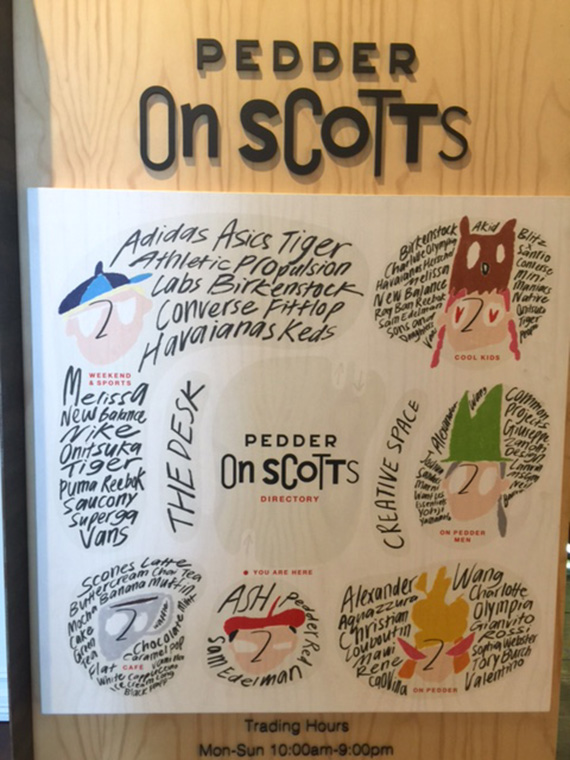 PEDDER
On SCOTTS
Adidas Asics Tiger
Athletic Propulsion
Labs Birkenstock
Converse Fitflop
Havaianas Keds
2
WEEKEND
& SPORTS
Melissa
New Balance
Nike
Onitsuka
Tiger
Puma Reebok
Saucony
Superga
Vans
THE DESK
PEDDER
On SCOTTS
DIRECTORY
Birkenstock
Charlotte Olympia
Havaianas Herschel
Melissa
New Balance
Ray Ban Reebok
Sam Edelman
Sons and
Daughters
Akid
Blitz
Sanrio
Converse
Mini
Maniacs
Native
Onitsuka
Tiger
2
COOL KIDS
CREATIVE SPACE
Alexander Wang
Common
Projects
Giuseppe
Zanotti
2
ON PEDDER
MEN
Scones Latte
Buttercream Chai Tea
Mocha Banana Muffin
Cake
Green
Tea
Flat
Chocolate Mint
Caramel pop
White Cappuccino
Ice Cream
Black
2
CAFÉ
YOU ARE HERE
ASH Pedder Red
Sam Edelman
2
Alexander Wang
Aquazzura
Christian
Louboutin
Maui
Rene
Caovilla
Charlotte
Olympia
Gianvito
Rossi
Sophia Webster
Tory Burch
Valentino
2
ON PEDDER
Trading Hours
Mon-Sun 10:00am-9:00pm